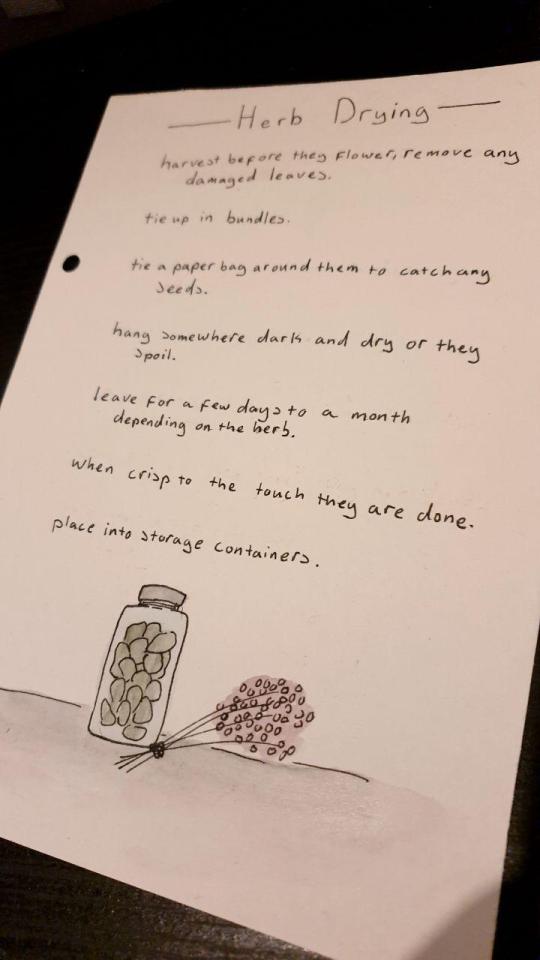 Herb Drying
harvest before they flower, remove any
damaged leaves.
tie up in bundles.
tie a paper bag around them to catch any
seeds.
hang somewhere dark and dry or they
spoil.
leave for a few days to a month
depending on the herb.
when crisp to the touch they are done.
place into storage containers.